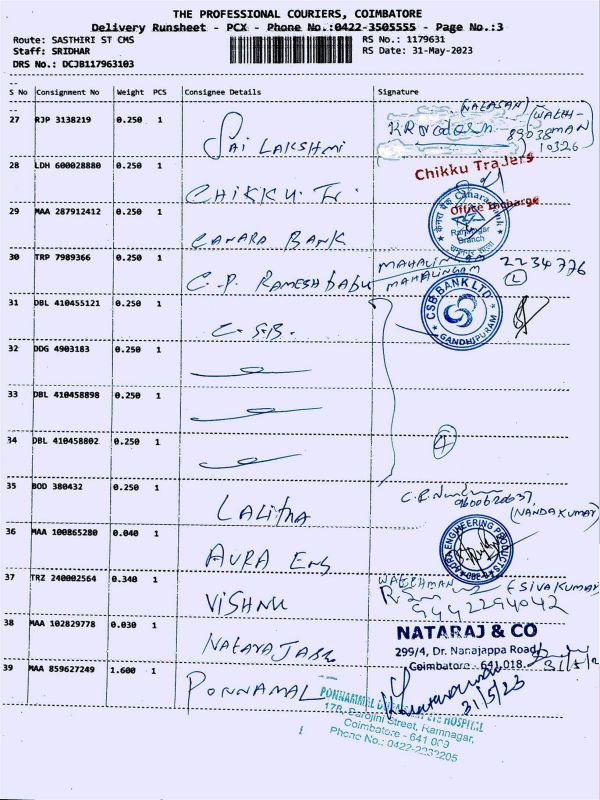 THE PROFESSIONAL COURIERS, COIMBATORE
Delivery Runsheet - PCX - Phone No.:0422-3505555 - Page No.:3
Route: SASTHIRI ST CMS
RS No.: 1179631
Staff: SRIDHAR
RS Date: 31-May-2023
DRS No.: DCJB117963103
S No Consignment No Weight PCS Consignee Details Signature
27 RJP 3138219 0.250 1 SAI LAKSHMI
(NATASAN)
(WATCH-
MAN)
89038
10326
28 LDH 600028880 0.250 1 CHIKKU Tr.
Chikku Traders
Office Incharge
29 MAA 287912412 0.250 1 CANARA BANK
केनरा बैंक Canara Bank
Ramnagar
Branch
30 TRP 7989366 0.250 1 C.P. RAMESH babu
MAHALINGAM
2234776
31 DBL 410455121 0.250 1 C.S.B.
CSB BANK LTD
GANDHIPURAM
32 DDG 4903183 0.250 1
33 DBL 410458898 0.250 1
34 DBL 410458802 0.250 1
4
35 BOD 380432 0.250 1 LALITHA
9600620637.
(NANDAKUMAR)
36 MAA 100865280 0.040 1 AURA Eng
AURA ENGINEERING PRODUCTS
37 TRZ 240002564 0.340 1 VISHNU
WATCHMAN
ESIVAKUMAR
9442294042
38 MAA 102829778 0.030 1
NATARAJ & CO
299/4, Dr. Nanajappa Road
Coimbatore - 641 018.
39 MAA 859627249 1.600 1 PONNAMAL
31/5/23
HOSPITAL
176, Sarojini Street, Ramnagar,
Coimbatore - 641 009
Phone No.: 0422-2232205